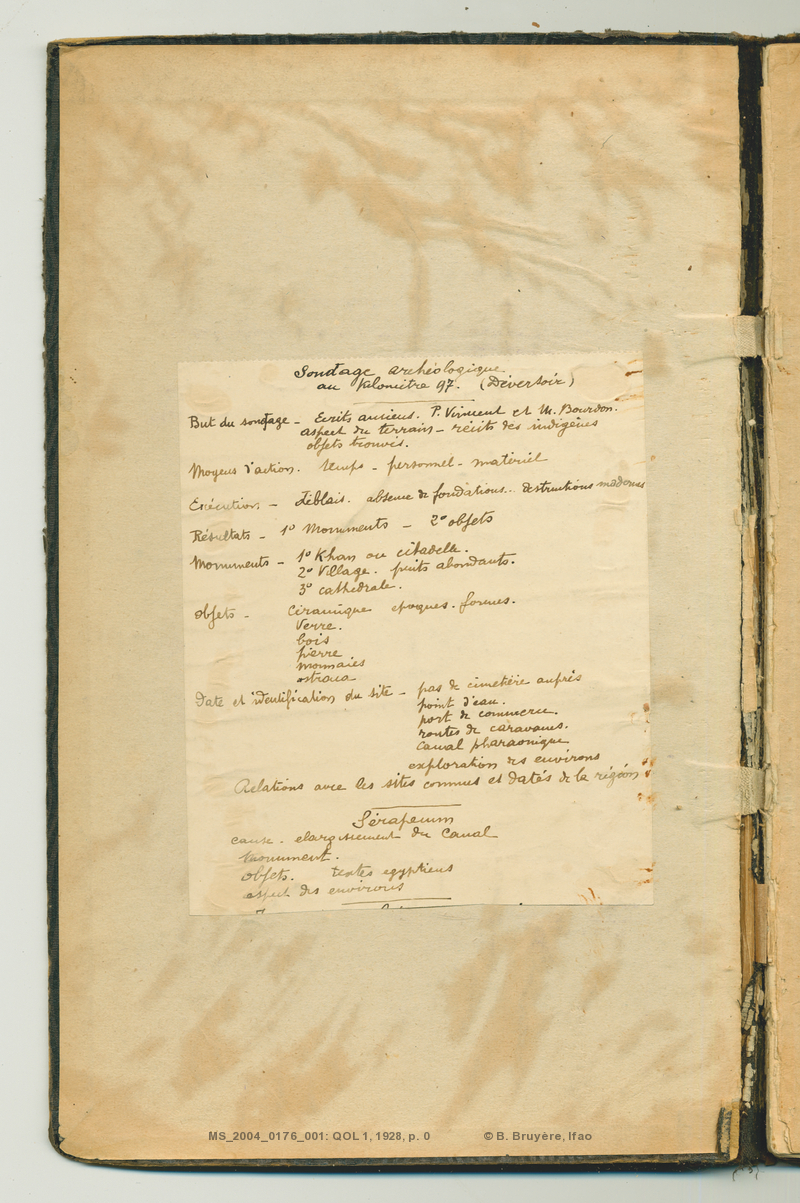 Sondage archéologique
au Kilomètre 97. (Déversoir)
But du sondage - Ecrits anciens. P. Vincent et M. Bourdon.
aspect du terrain - récits des indigènes
objets trouvés.
Moyens d'action. temps - personnel - matériel
Exécution - déblais. absence de fondations... destructions modernes
Résultats - 1º Monuments - 2º objets
Monuments - 1º Khan ou citadelle.
2º Village. puits abondants.
3º cathédrale.
Objets - Céramique époques. formes.
Verre.
bois
pierre
monnaies
ostraca
Date et identification du site - pas de cimetière auprès
point d'eau.
port de commerce.
routes de caravanes.
Canal pharaonique
exploration des environs
Relations avec les sites connus et datés de la région
Sérapeum
cause. élargissement du Canal
Monument.
objets. textes égyptiens
aspect des environs
MS_2004_0176_001: QOL 1, 1928, p. 0 © B. Bruyère, Ifao